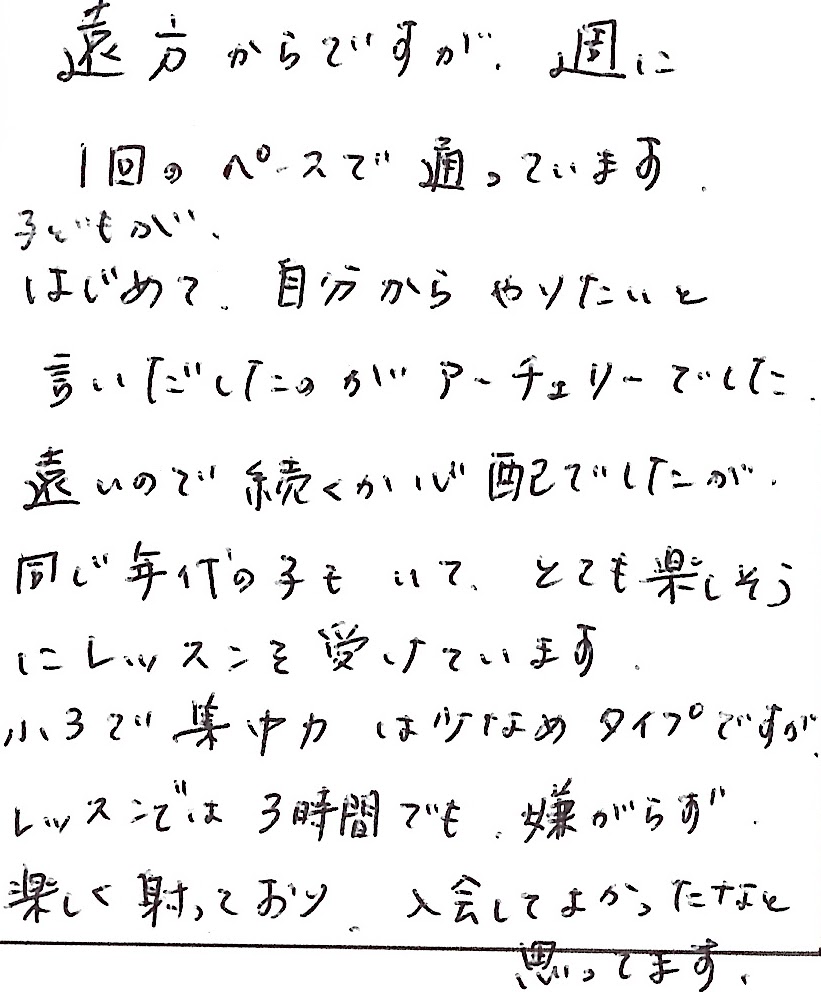 遠方からですが、週に
1回のペースで通っています。
子どもが、
はじめて、自分からやりたいと
言いだしたのがアーチェリーでした。
遠いので続くか心配でしたが、
同じ年代の子もいて、とても楽しそう
にレッスンを受けています。
小3で集中力は少なめタイプですが、
レッスンでは3時間でも、嫌がらず、
楽しく射っており、入会してよかったなと
思ってます。